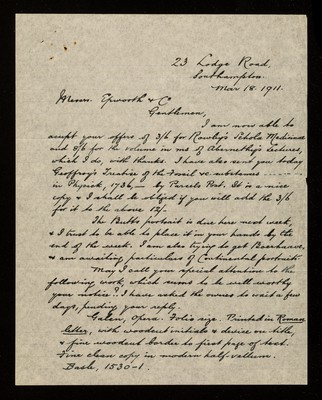 23 Lodge Road,
Southampton.
Mar 18. 1911.
Messrs. Epworth & Co
Gentlemen,
I am now able to
accept your offers of 3/6 for Rowley's Schola Medicinae
and 8/6 for the volume in ms of Abernethy's Lectures,
which I do, with thanks. I have also sent you today
Geoffroy's Treatise of the Fossil &c substances
in Physick, 1736, — by Parcels Post. It is a nice
copy & I shall be obliged if you will add the 3/6
for it to the above 12/-.
The Butts portrait is due here next week,
& I trust to be able to place it in your hands by the
end of the week. I am also trying to get Boerhaave,
& am awaiting particulars of Continental portraits.
May I call your special attention to the
following work, which seems to be well worthy
your notice? I have asked the owner to wait a few
days, pending your reply.
Galen, Opera. Folio size. Printed in Roman
letter, with woodcut initials & device on title,
& fine woodcut border to first page of text.
Fine clean copy in modern half-vellum.
Basle, 1530-1.